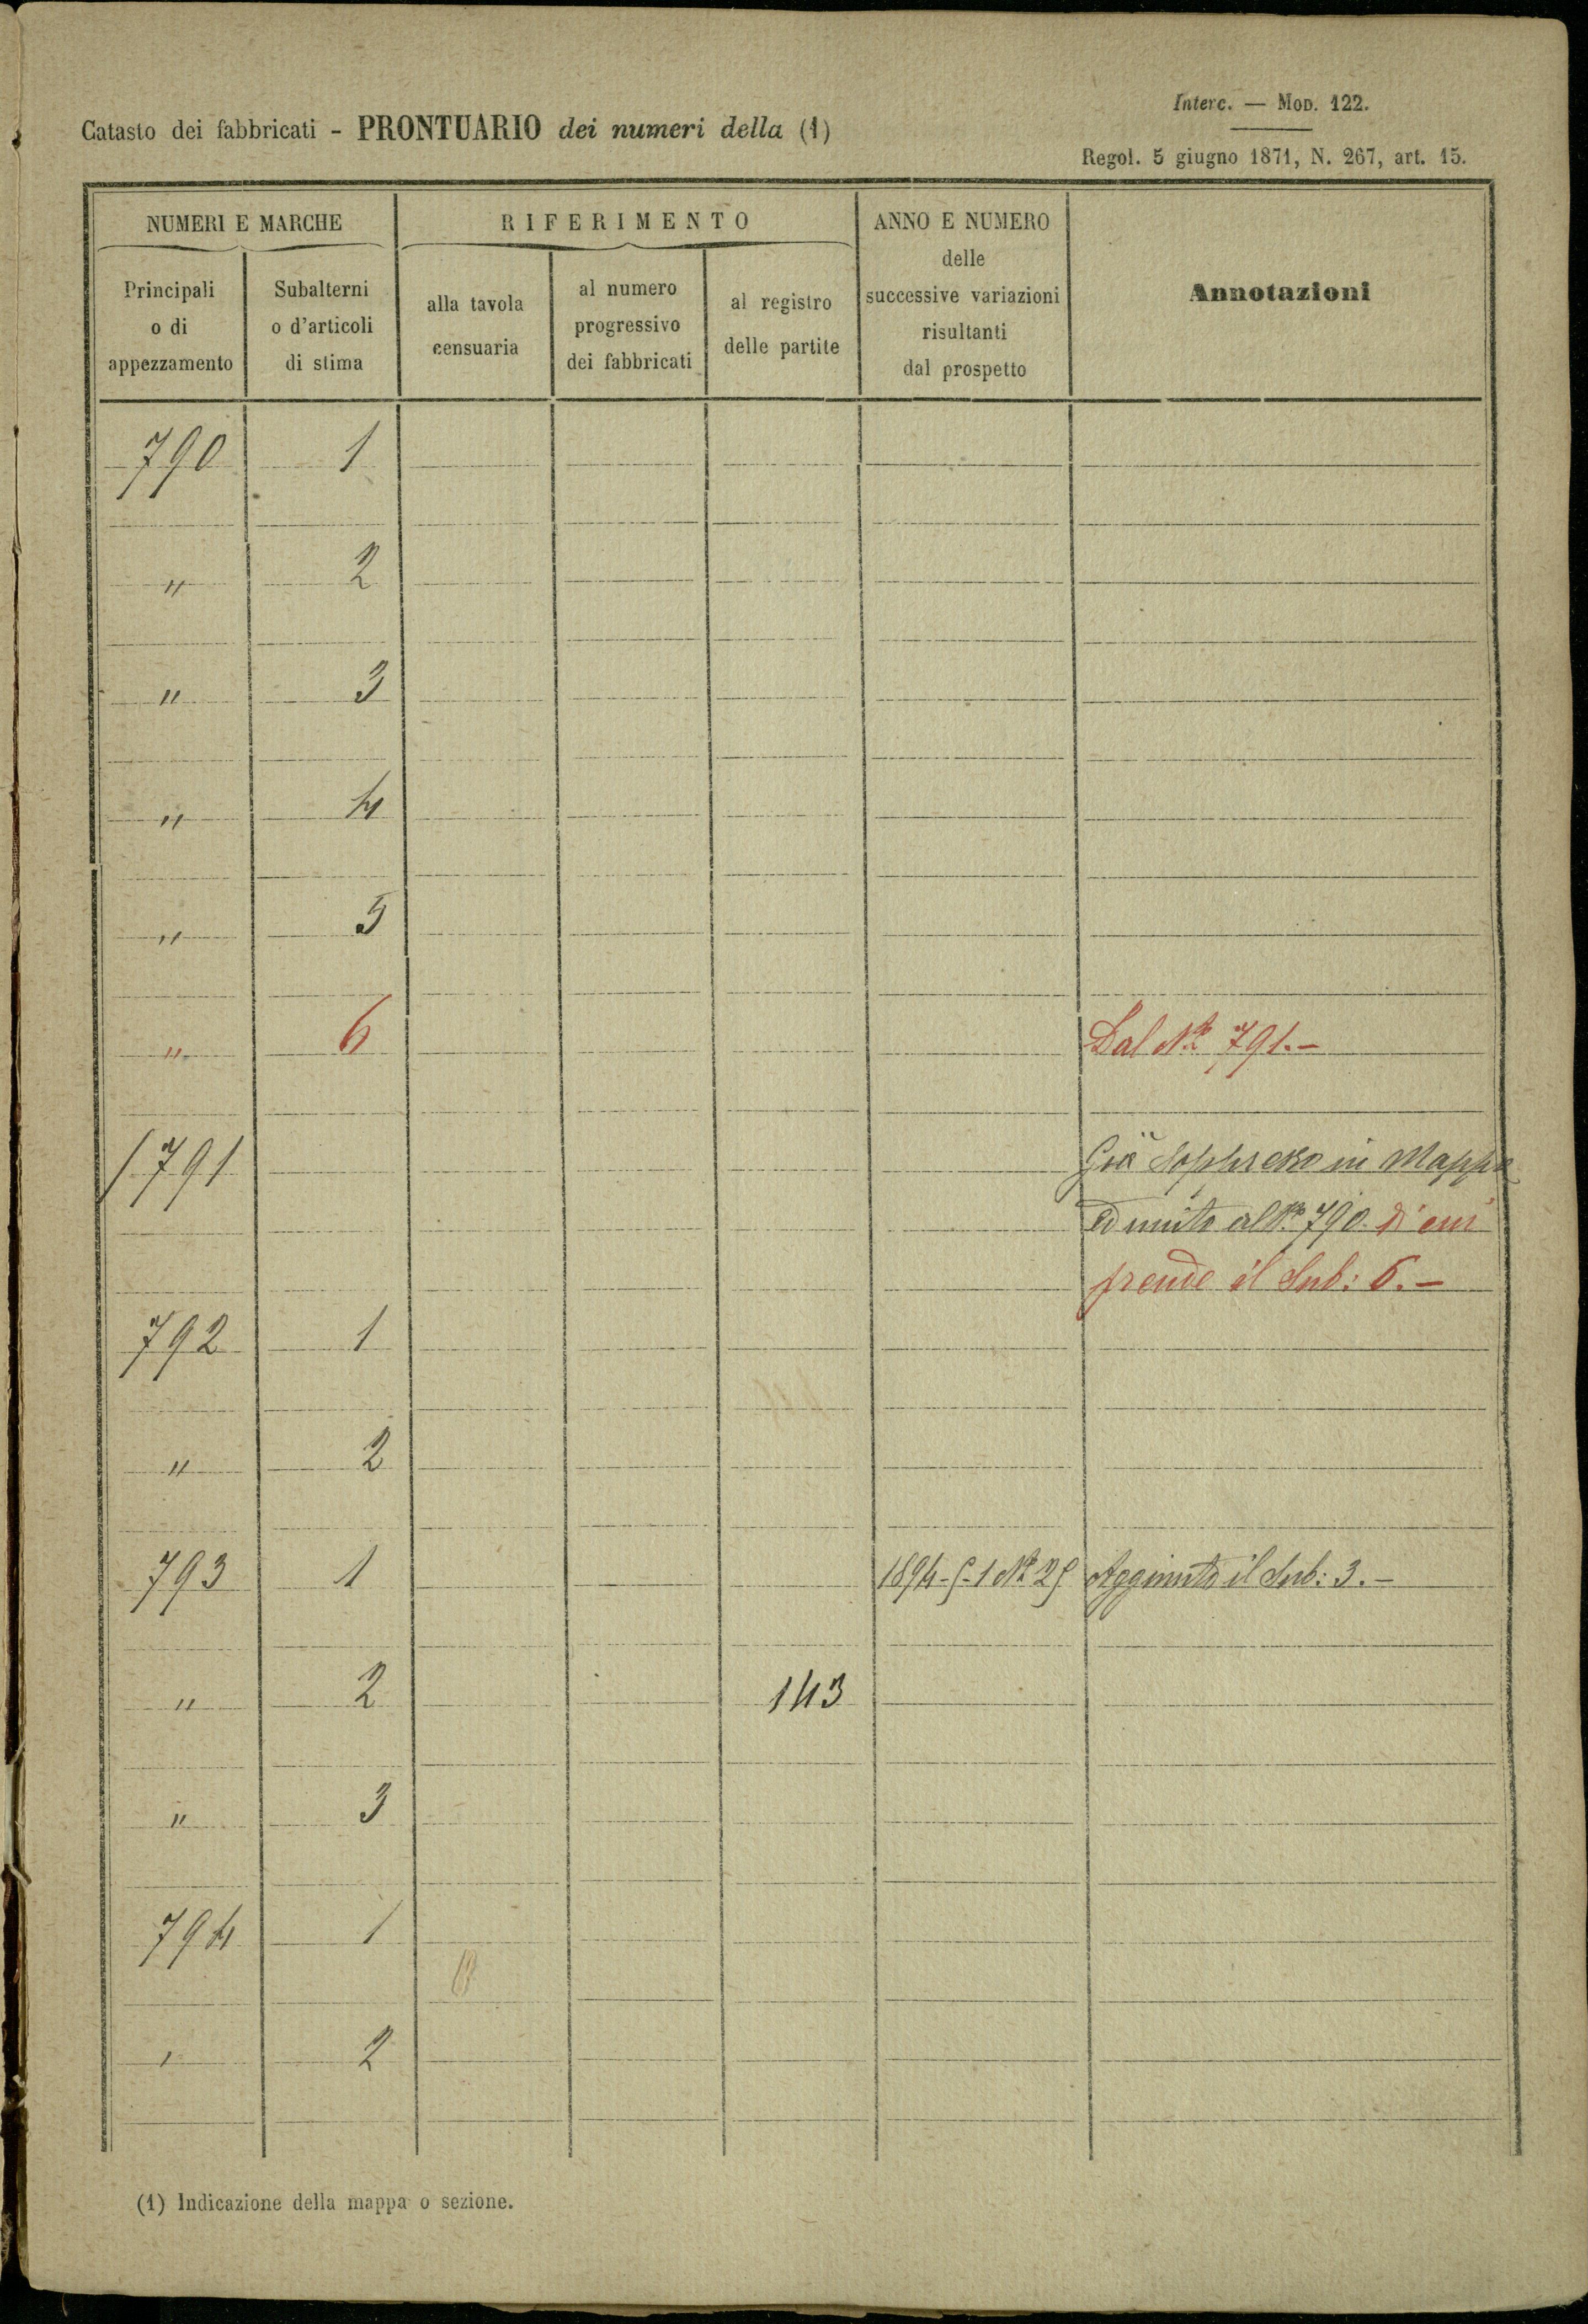 Interc. — Mod. 122.
Catasto dei fabbricati - PRONTUARIO dei numeri della (1)
Regol. 5 giugno 1871, N. 267, art. 15.
NUMERI E MARCHE
RIFERIMENTO
ANNO E NUMERO
delle
successive variazioni
risultanti
dal prospetto
Annotazioni
Principali
o di
appezzamento
Subalterni
o d'articoli
di stima
alla tavola
censuaria
al numero
progressivo
dei fabbricati
al registro
delle partite
790 1
" 2
" 3
" 4
" 5
" 6 Dal N.º 791.-
791 Già soppresso in Mappa
ed unito al N.º 790. di cui
prende il Sub: 6.-
792 1
" 2
793 1 1894-5-1 N.º 25 Aggiunto il Sub: 3.-
" 2 143
" 3
794 1
" 2
(1) Indicazione della mappa o sezione.